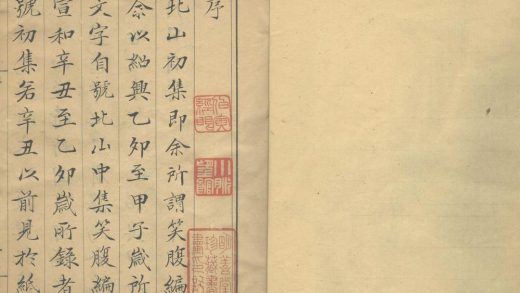 序
北山初集即余所謂笑腹編
余以紹興乙卯至甲子歲所
文字自號北山中集笑腹編
宣和辛丑至乙卯歲所錄者
號初集若辛丑以前見於紙
明善堂
珍藏書
畫印記